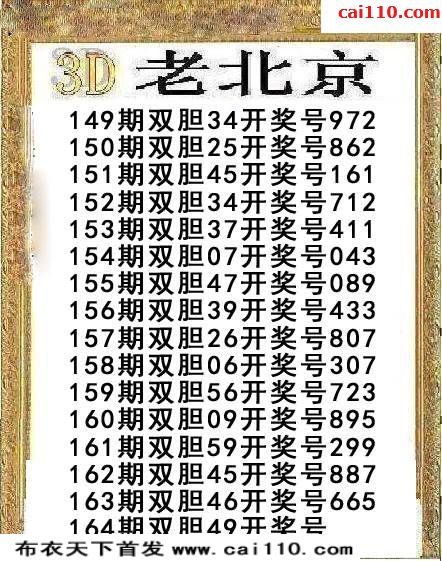 cai110.com
3D 老北京
149期双胆34开奖号972
150期双胆25开奖号862
151期双胆45开奖号161
152期双胆34开奖号712
153期双胆37开奖号411
154期双胆07开奖号043
155期双胆47开奖号089
156期双胆39开奖号433
157期双胆26开奖号807
158期双胆06开奖号307
159期双胆56开奖号723
160期双胆09开奖号895
161期双胆59开奖号299
162期双胆45开奖号887
163期双胆46开奖号665
164期双胆49开奖号
布衣天下首发 www.cai110.com